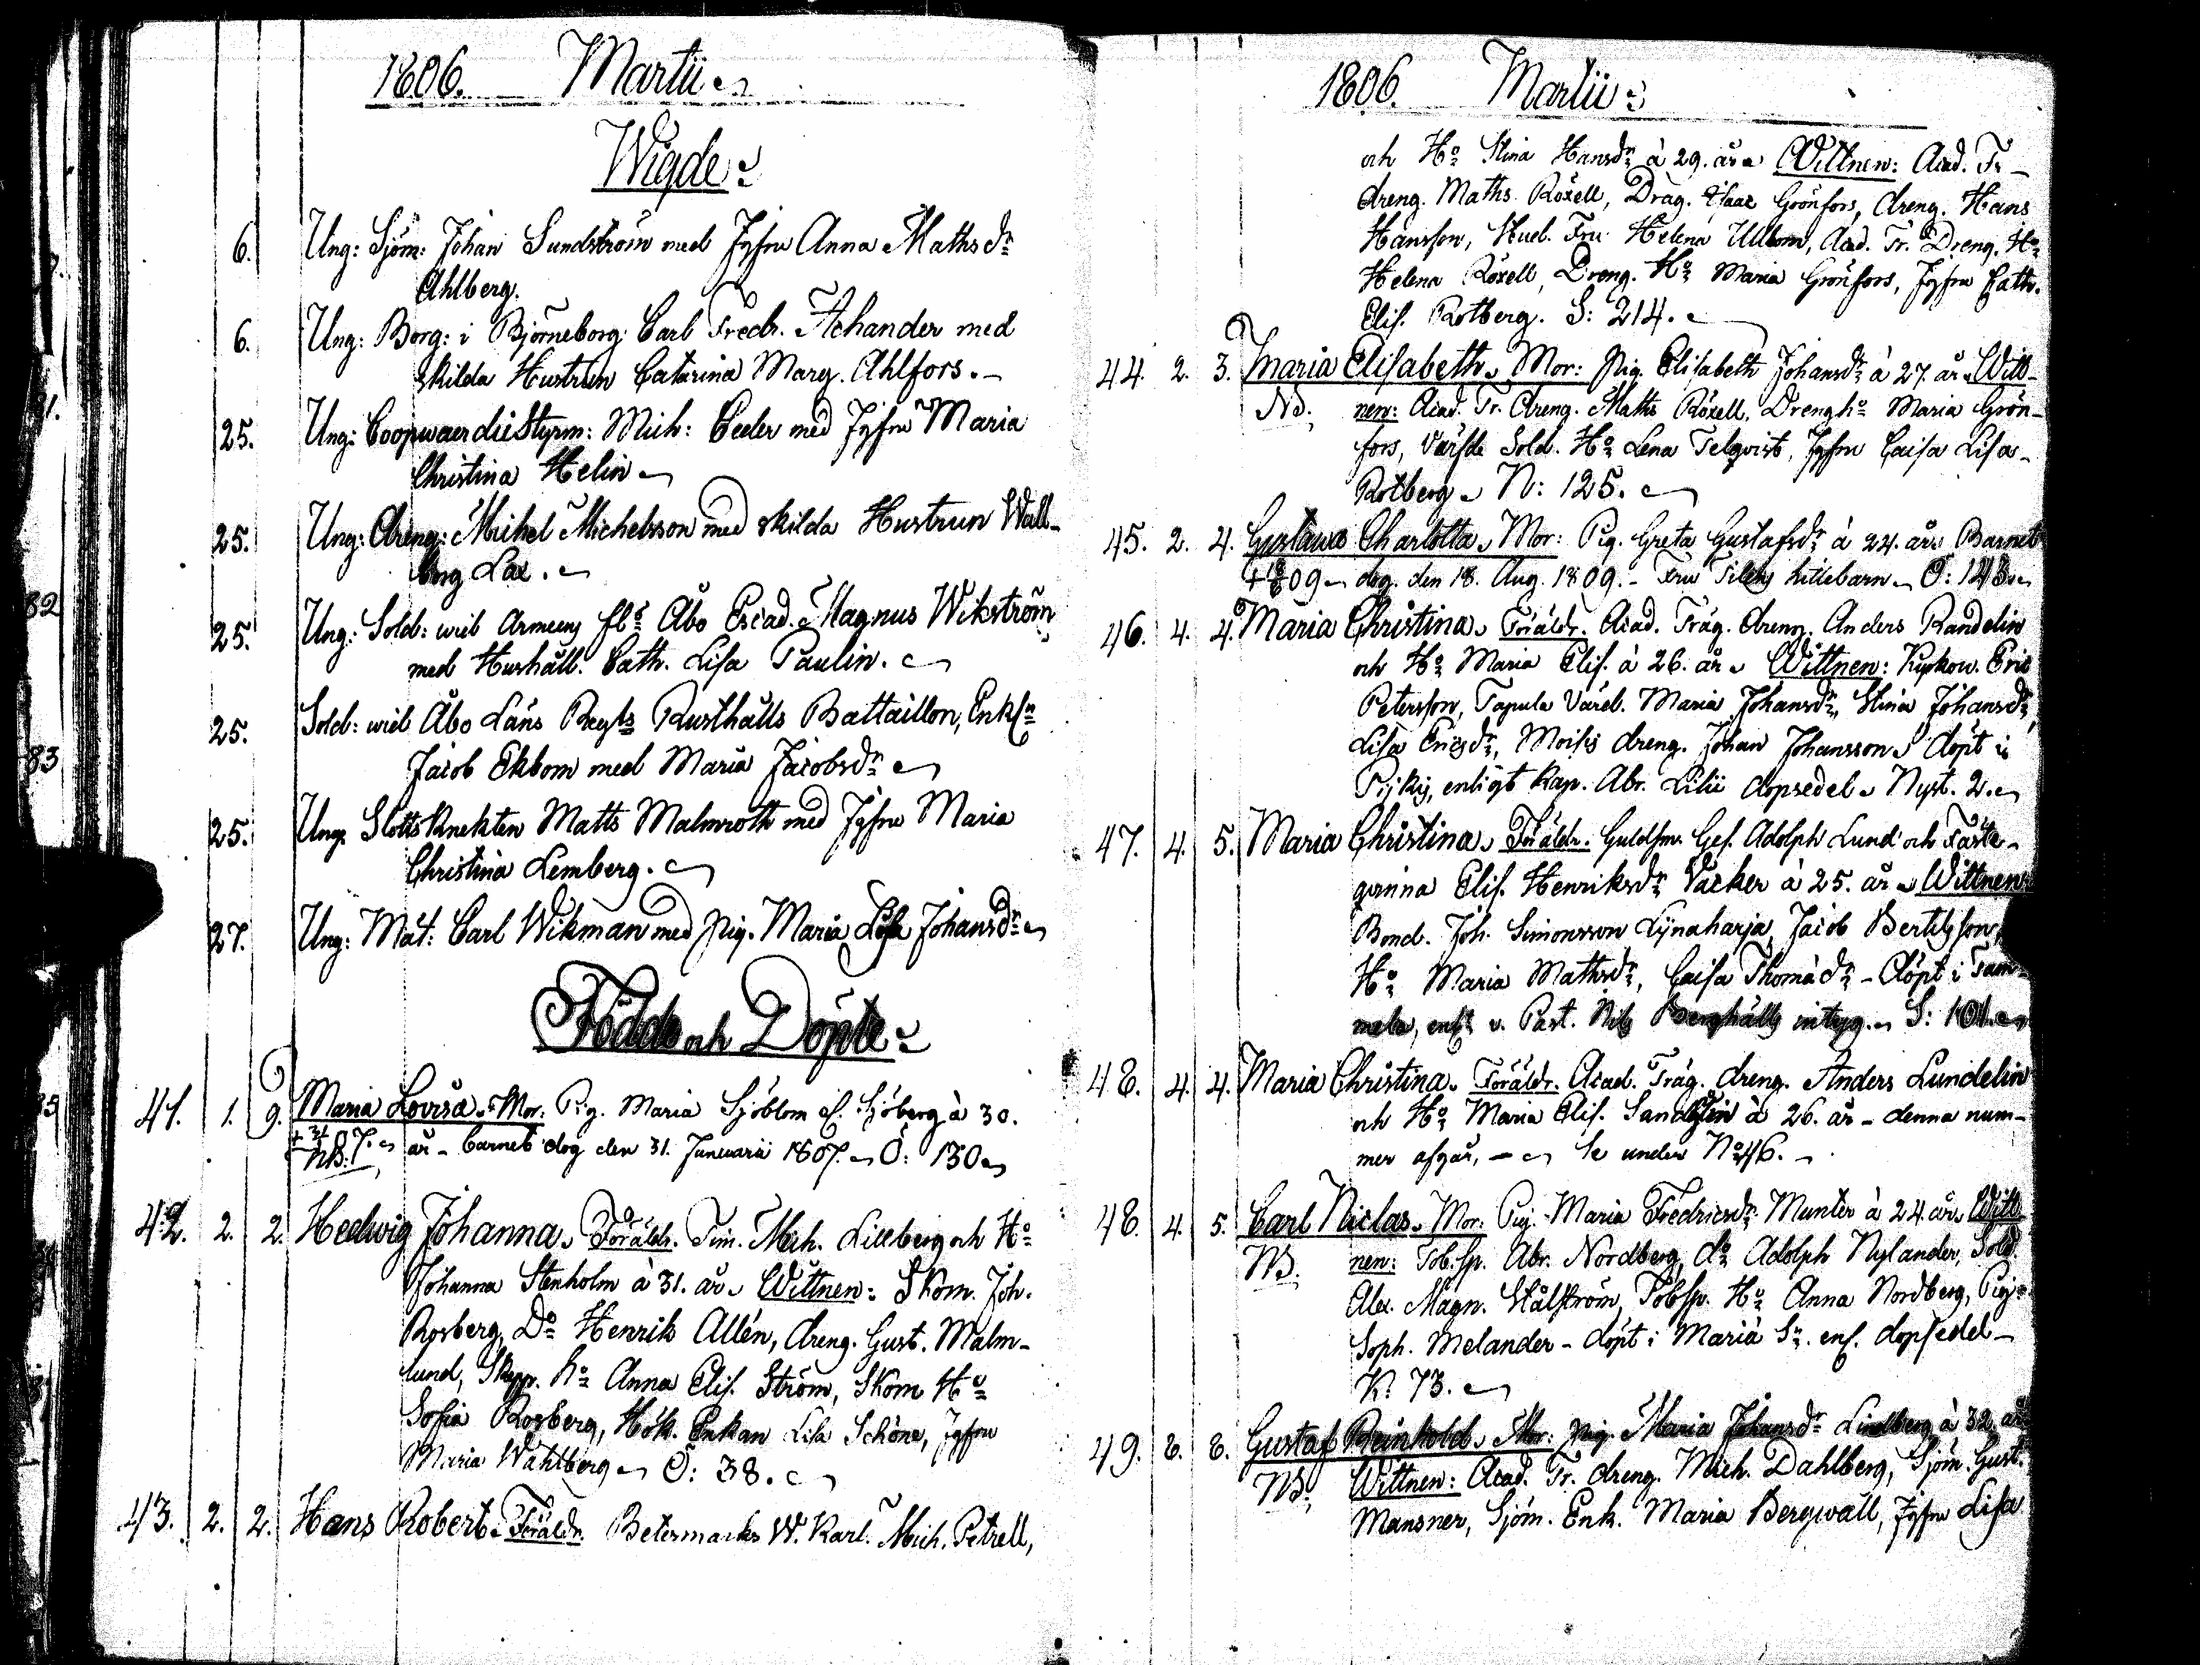 1806. Martii
Wigde
6. Ung: Sjöm: Johan Sundström med Jgfru Anna Mathsdr
Ahlberg.
6. Ung: Borg: i Björneborg: Carl Fredr. Achander med
skilda Hustrun Catarina Marg. Ahlfors.
25. Ung: CoopvaerdieStyrm: Mich: Ceder med Jgfru Maria
Christina Helin
25. Ung: dreng: Mickel Michelsson med skilda Hustrun Wall-
borg Lax.
25. Ung: Sold: wid Armeens Åbo Escad. Magnus Wikström
med Hushåll. Cath. Lisa Paulin.
25. Sold: wid Åbo Läns Regts Rusthålls Battaillon, Enkln
Jacob Ekbom med Maria Jacobsdr
25. Ung. SlottsKnekten Matts Malmroth med Jgfru Maria
Christina Lemberg.
27. Ung: Mat: Carl Wikman med pig. Maria Lisa Johansdr
Födde och Döpte
41. 1. 9. Maria Lovisa. Mor: Pig. Maria Sjöblom el. Sjöberg à 30.
NB: år - barnet dog den 31. Januarii 1807. Ö: 130
42. 2. 2. Hedwig Johanna. Föräldr. Tim. Mich. Lilleberg och Ho
Johanna Stenholm à 31. år. Wittnen: Skom. Joh.
Rosberg, Do Henrik Allén, dreng. Gust. Malm-
lund, Skepp. ho Anna Elis. Ström, Skom. Ho
Sofia Rosberg, Hök. Enkan Lisa Schöne, Jgfru
Maria Wahlberg Ö: 38.
43. 2. 2. Hans Robert. Föräldr. W. Karl. Mich. Petrell,
1806. Martii
och Ho Stina Hansdr à 29. år. Wittnen: Acad. Tr
dreng. Maths Roxell, Drag. Isaac Grönfors, dreng. Hans
Hansson, Fru Helena Ullbom, Acad. Tr. Dreng. Ho
Helena Roxell, Dreng. Ho Maria Grönfors, Jgfru Cath.
Elis. Rotberg. S: 214.
44. 2. 3. Maria Elisabeth. Mor: Pig. Elisabeth Johansdr à 27. år. Witt-
NB. nen: Acad. Tr. dreng. Maths Roxell, Drengho Maria Grön-
fors, Sold. Ho Lena Telqvist, Jgfru Caisa Lisa
Rotberg N: 125.
45. 2. 4. Gustawa Charlotta. Mor: Pig. Greta Gustafsdr à 24. år. Barnet
09 dog den 18. Aug. 1809. - Fru hittebarn. Ö: 143
46. 4. 4. Maria Christina. Föräldr. Acad. Träg. dreng. Anders Randelin
och Ho Maria Elis. à 26. år. Wittnen: Kyrkow. Eric
Petersson, Tapula Maria Johansdr, Stina Johansdr,
Lisa Ericsdr, Moisis dreng. Johan Johansson. döpt i
Pijkis, enligt Kap. Abr. Lilii dopsedel. Nyst. 2.
47. 4. 5. Maria Christina. Föräldr. Guldsm. Ges. Adolph Lund och Färte-
qvinna Elis. Henriksdr Vacker à 25. år. Wittnen:
Bond. Joh. Simonsson Lijnaharja, Jacob Bertilsson,
Ho Maria Mathsdr, Caisa Thomædr - döpt i Tam-
mela, enl. v. Past. Nils Berghälls intyg. S: 101.
48. 4. 4. Maria Christina. Föräldr. Acad. Träg. dreng. Anders Lundelin
och Ho Maria Elis. Sandelin à 26. år - denna num-
mer afgår, - se under No 46.
48. 4. 5. Carl Niclas. Mor: Pig. Maria Fredricsdr Munter à 24 år. Witt-
NB. nen: Tob.sp. Abr. Nordberg, do Adolph Nylander, Sold.
Alex. Magn. Stålström, Tobsp. Ho Anna Nordberg, Pig.
Soph. Melander - döpt i Mariæ Sn. enl. dopsedel
K: 73.
49. 8. 8. Gustaf Reinhold. Mor: pig. Maria Johansdr Lindberg à 32. år
NB. Wittnen: Acad. Tr. dreng. Mich. Dahlberg, Sjöm. Gust.
Mansner, Sjöm. Enk. Maria Bergwall, Jgfru Lisa